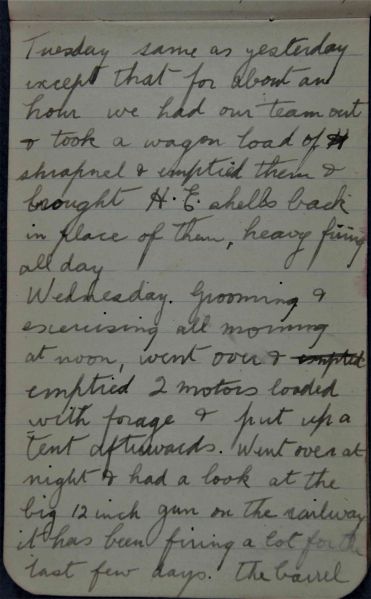 Tuesday same as yesterday
except that for about an
hour we had our team out
& took a wagon load of
shrapnel & emptied them &
brought H.E. shells back
in place of them, heavy firing
all day
Wednesday. Grooming &
exercising all morning
at noon, went over & emptied
emptied 2 motors loaded
with forage & put up a
tent afterwards. Went over at
night & had a look at the
big 12 inch gun on the railway
it has been firing a lot for the
last few days. The barrel